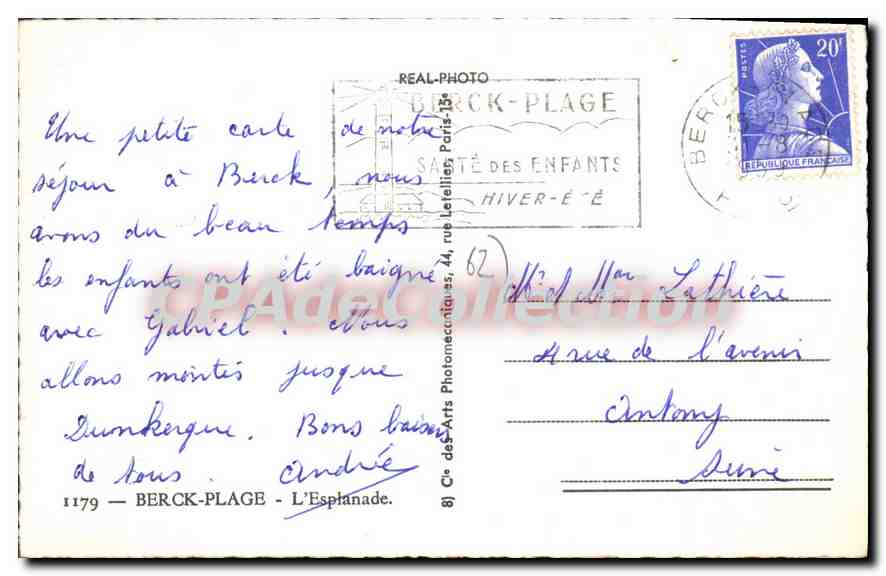 REAL-PHOTO
BERCK-PLAGE
SANTÉ DES ENFANTS
HIVER-ÉTÉ
BERCK
POSTES
20F
RÉPUBLIQUE FRANÇAISE
Une petite carte de notre
séjour à Berck, nous
avons du beau temps
les enfants ont été baigné
avec Gabriel. Nous
allons montés jusque
Dunkerque. Bons baisers
de tous. Andrée
1179 — BERCK-PLAGE - L'Esplanade.
8) Cie des Arts Photomecaniques, 44, rue Letellier, Paris-15e
62
CPAdeCollection
Lathière
4 rue de l'avenir
Antony
Seine